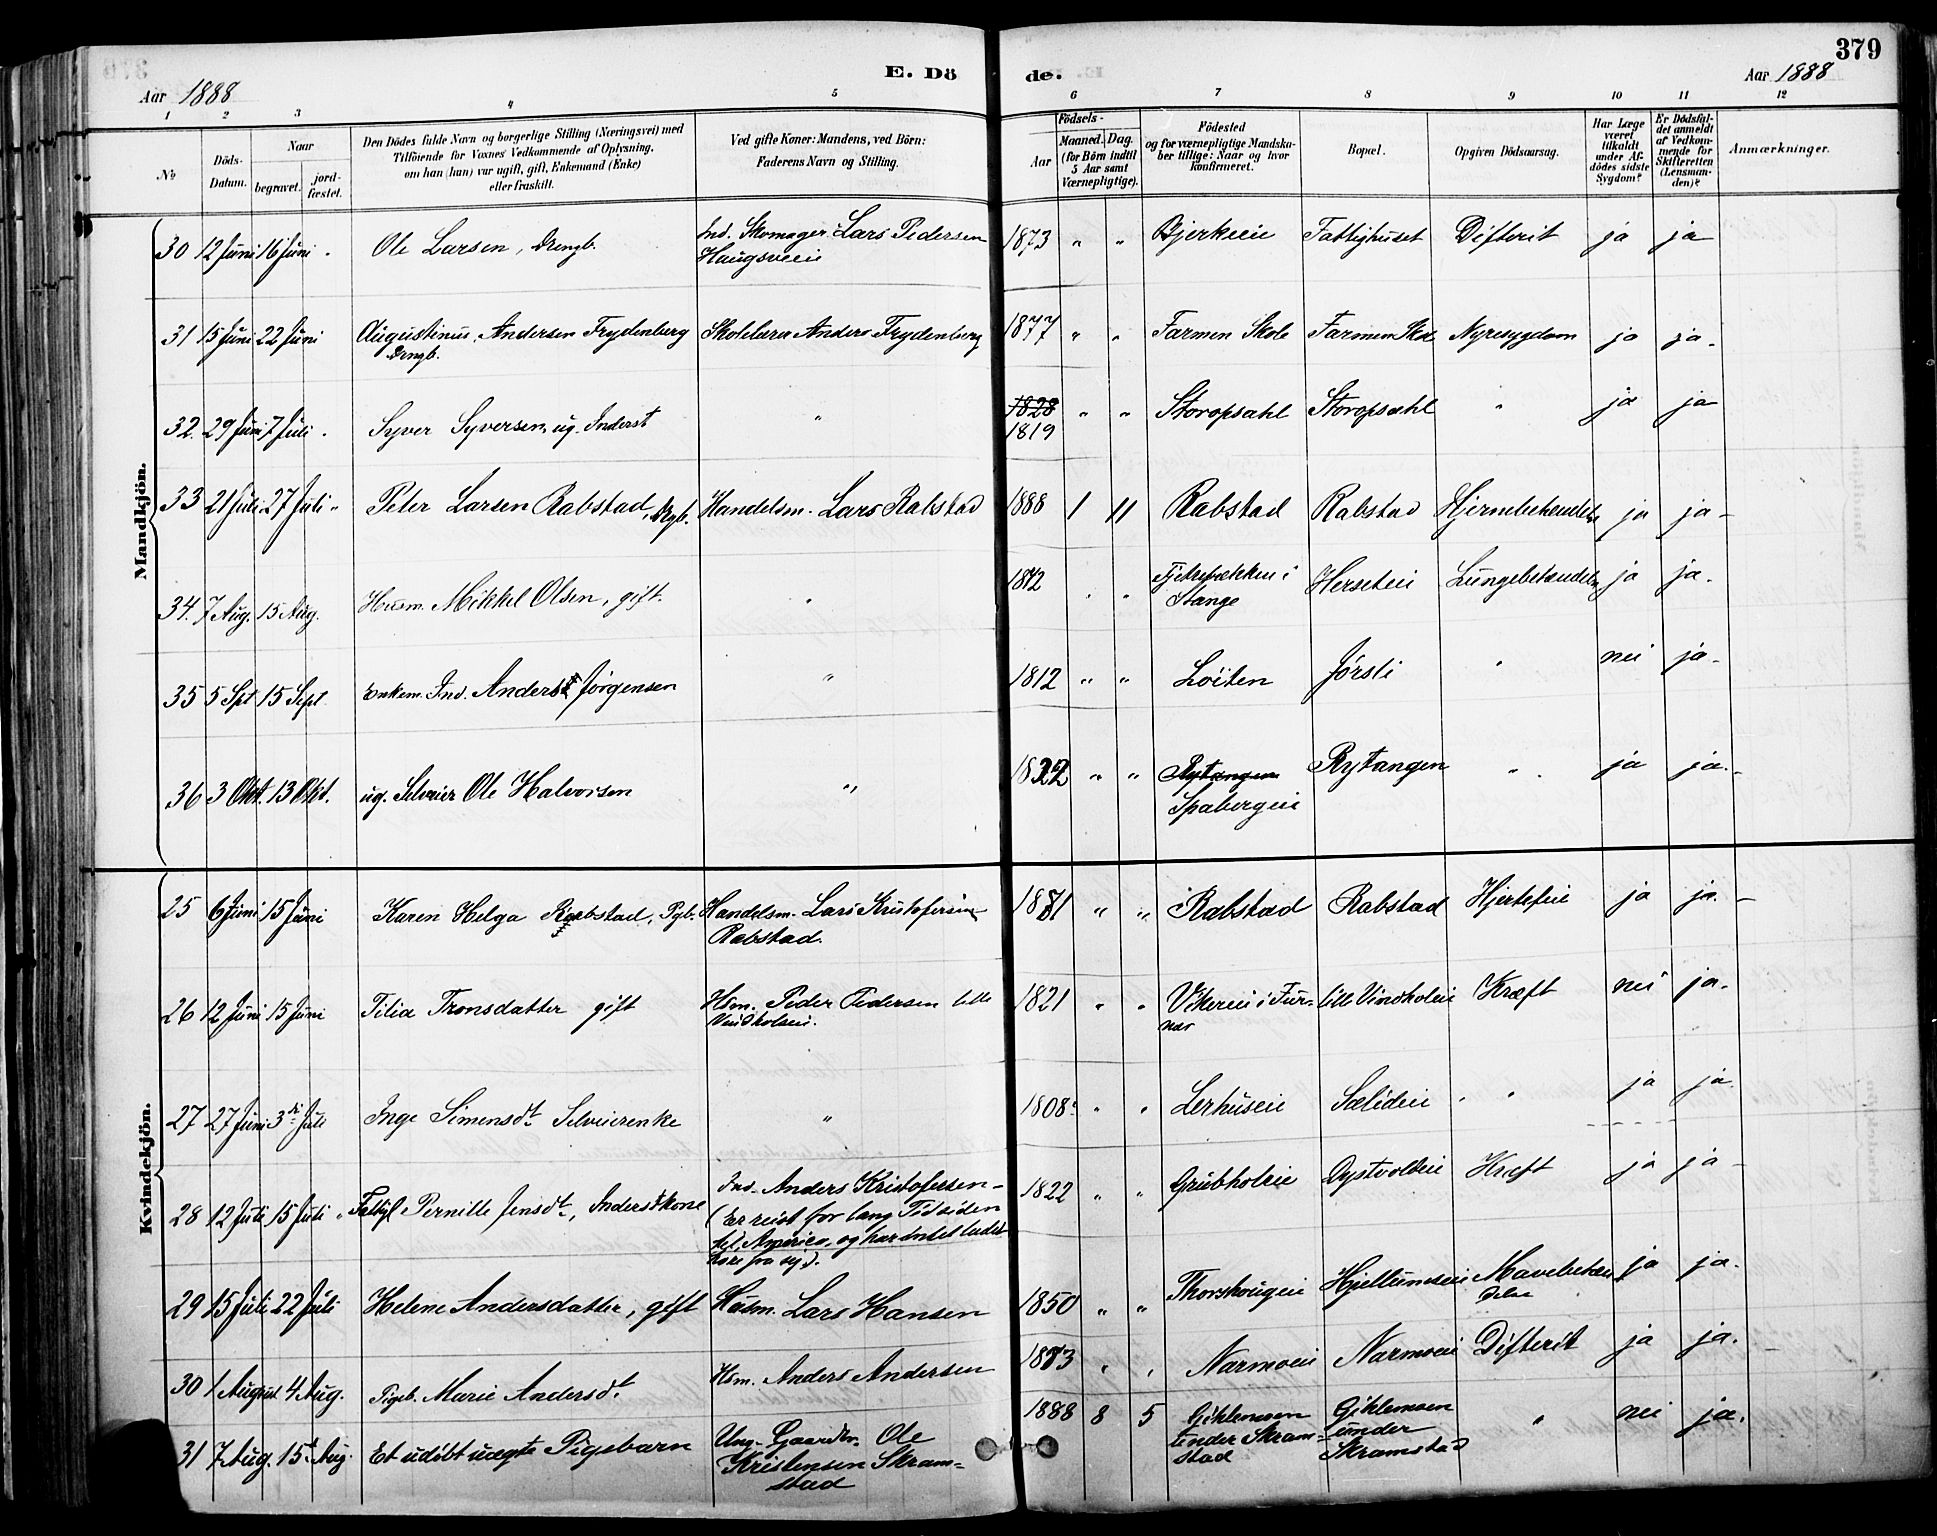 379
E. Dö de.
Aar 1888
Aar 1888
1 2 3 4 5 6 7 8 9 10 11 12
No
Döds-Datum.
Naar
begravet.
jord-fæstet.
Den Dödes fulde Navn og borgerlige Stilling (Næringsvei) med
Tilföiende for Voxnes Vedkommende af Oplysning,
om han (hun) var ugift, gift, Enkemand (Enke)
eller fraskilt.
Ved gifte Koner: Mandens, ved Börn:
Faderens Navn og Stilling.
Födsels-
Aar
Maaned. Dag.
(for Börn indtil
5 Aar samt
Værnepligtige).
Födested
og for værnepligtige Mandska-
ber tillige: Naar og hvor
konfirmeret.
Bopæl.
Opgiven Dödsaarsag.
Har Læge
været
tilkaldt
under Af-
dödes sidste
Sygdom?
Er Dödsfal-
det anmeldt
af Vedkom-
mende for
Skifteretten
(Lensman-
den)?
Anmærkninger.
Mandkjön.
30 12 Juni 16 Juni " Ole Larsen, Drengb. Ind. Skomager Lars Pedersen 1873 " " Bjerkeeie Fattighuset Difterit ja ja
Haugsveeie
31 15 Juni 22 Juni Augustinus Andersen Frydenberg Skolelærer Anders Frydenberg 1877 " " Farmen Skole Farmen Skol Nyresygdom ja ja.
Drengb.
32. 29 Juni 7 Juli " Syver Syversen, ug. Inderst " 1828 " " Storopsahl Storopsahl " ja ja
1819
33 21 Juli 27 Juli " Peter Larsen Rabstad, Drgb. Handelsm. Lars Rabstad 1888 1 11 Rabstad Rabstad Hjernebetændelse ja ja
34. 7 Aug. 15 Aug. Husm. Mikkel Olsen, gift. " " " i
Stange Herseteie Lungebetændelse ja ja.
35 5 Spt 15 Sept Enkem. Ind. Anders Jørgensen " 1812 " " Løiten Jørsli " nei ja.
36 3 Okt. 13 Okt. ug. Selveier Ole Halvorsen " " " Rytangen Rytangen " ja ja.
Spabergeie
Kvindekjön.
25 6 Juni 15 Juni Karen Helga Rabstad, Pgb. Handelsm. Lars Kristofersen " " Rabstad Rabstad Hjertefeil ja ja.
Rabstad.
26 12 Juni 15 Juni Tilia Tronsdatter gift Hsm. Peder Pedersen lille 1821 " " Vikereie i Fur- lille Vindholeie Kræft nei ja.
Vindholseie. nes
27 27 Juni 3 Juli Inge Simensdt. Selveierenke " 1808. " " Lerhuseie Sælideie " ja ja
28 12 Juli 15 Juli " Fattigl. Pernille Jensdt., Inderstkone Ind. Anders Kristofersen 1822 " " Grubholeie Dystvoldeie Kræft ja ja
(Er reist for lang Tid siden
til America, og har Intet ladet
høre fra sig).
29 15 Juli 22 Juli Helene Andersdatter, gift Husm. Lars Hansen 1850 " " Thorshougeie Hjellumseie Mavebetæn ja ja.
delse
30 1 August 4 Aug. Pigeb. Marie Andersdt. Hsm. Anders Andersen " " Narmoeie Narmoeie Difterit ja ja.
31 7 Aug. 15 Aug. Et udøbt uægte Pigebarn Ung. Gaardbr. Ole 1888 8 5 Gihlemoen Gihlemoen " nei ja.
Kristensen Skram- under Skram- under
stad stad Skramstad